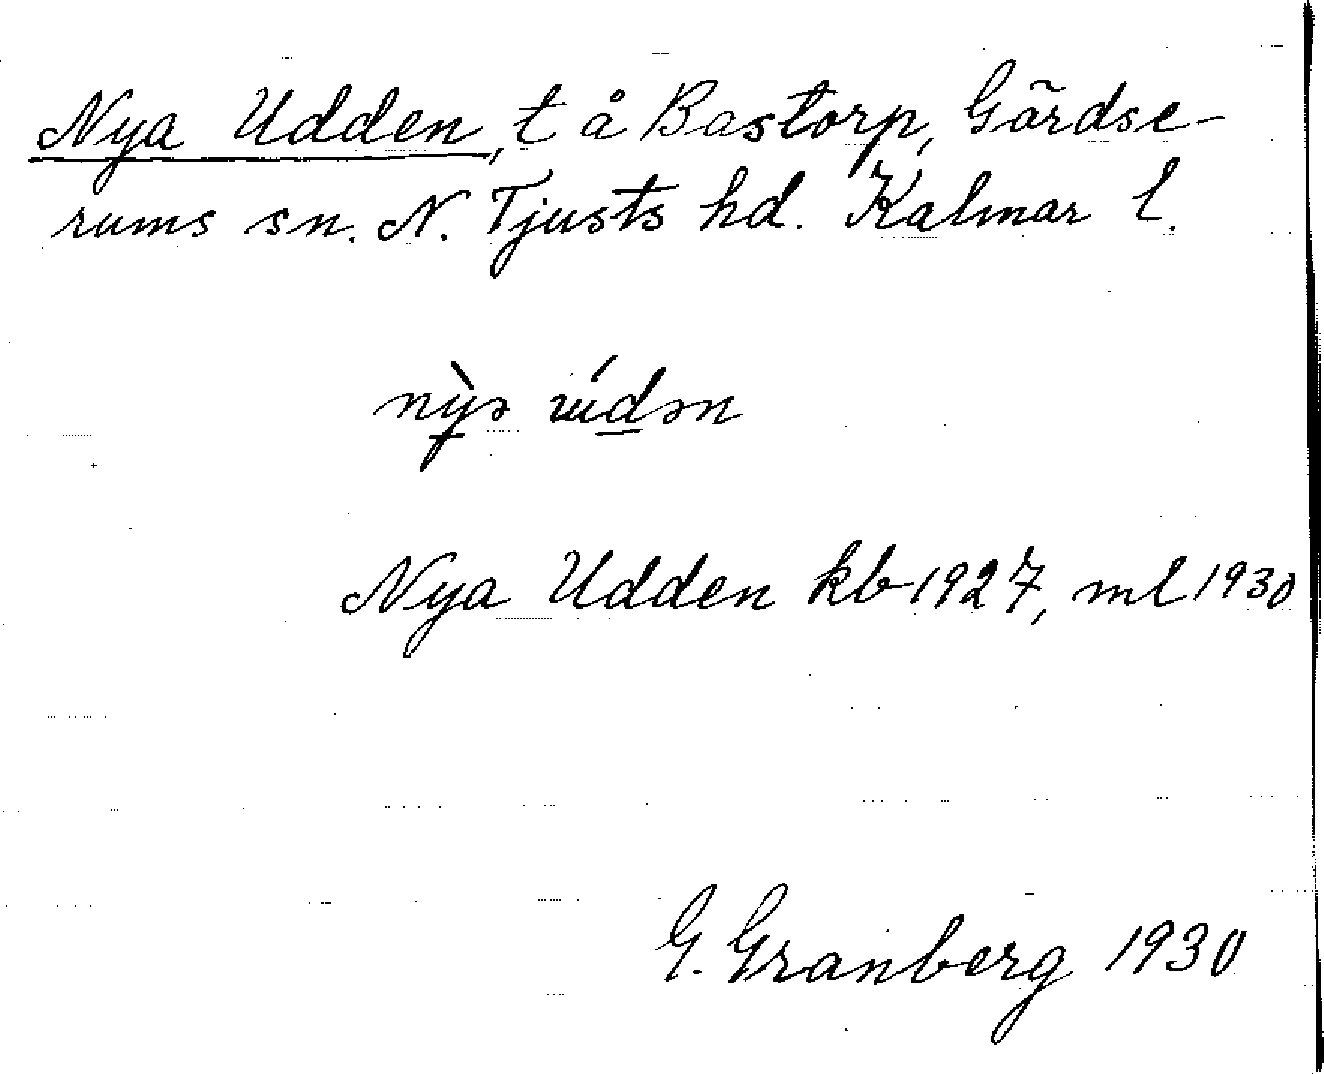 Nya Udden, t å Bastorp, Gärdse-
rums sn. N. Tjusts hd. Kalmar l.
Nya Udden kb 1927, ml 1930
G. Granberg 1930